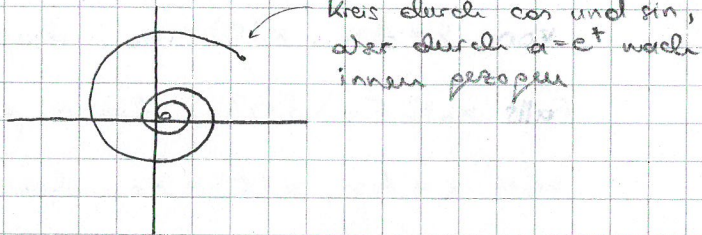 Kreis durch cos und sin,
aber durch a=e^t nach
innen gezogen